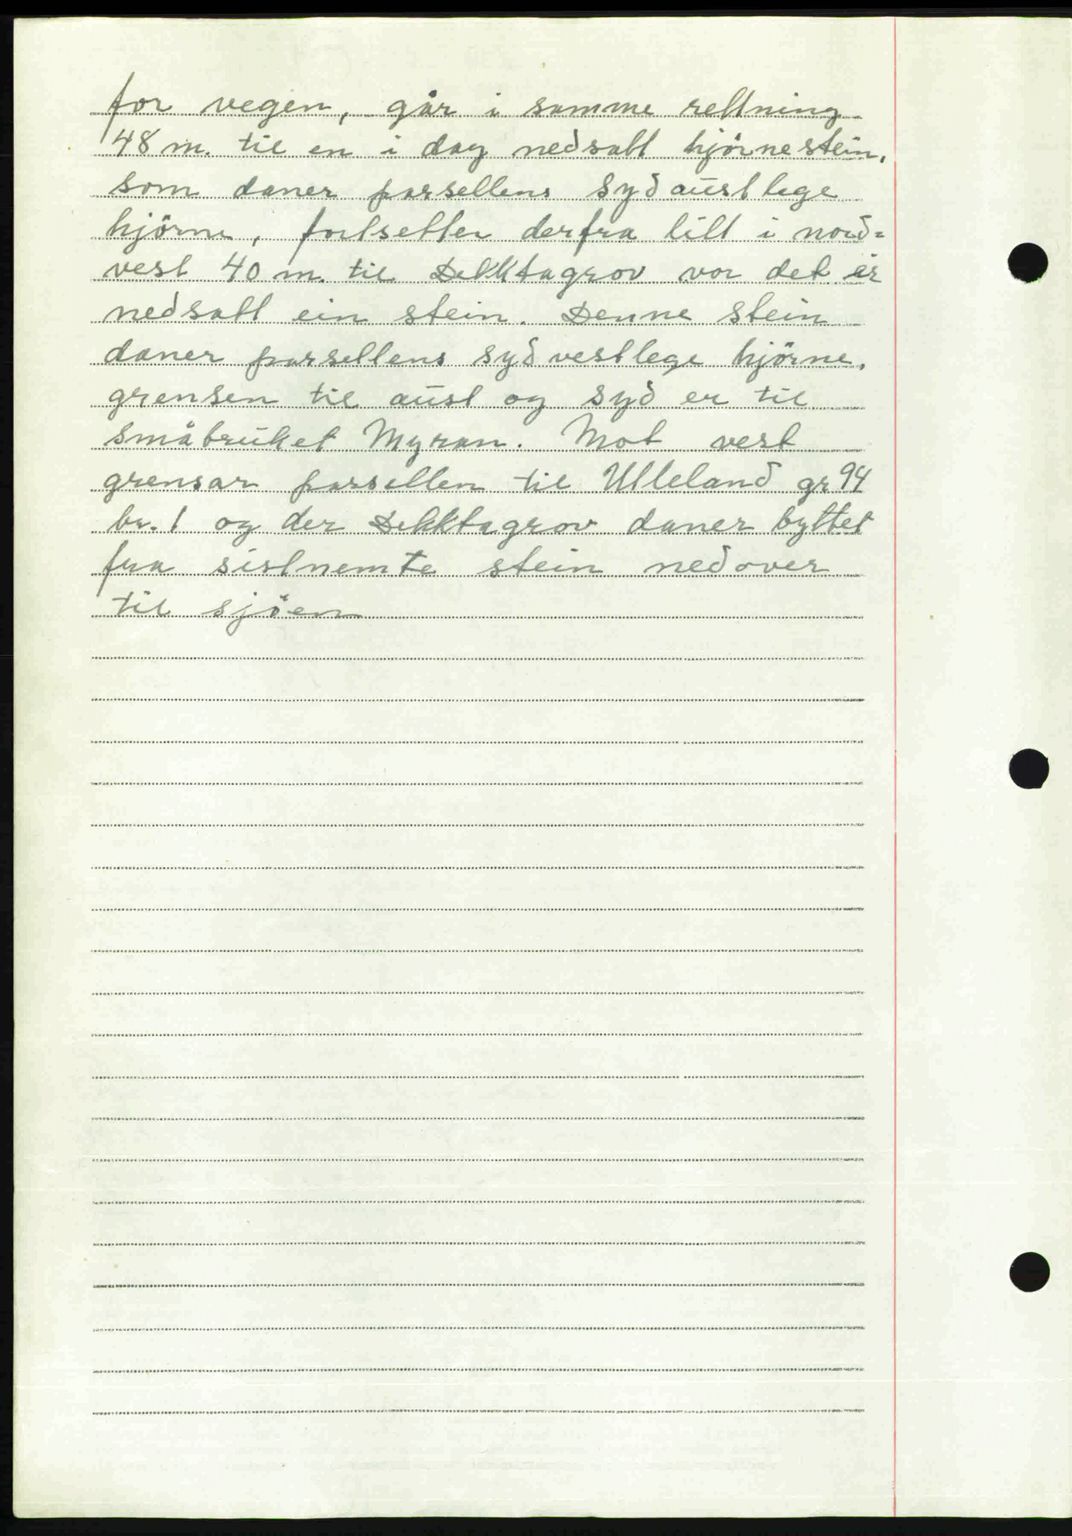 for vegen, går i samme rettning
48 m. til en i dag nedsatt hjörnestein,
som daner parsellens sydaustlege
hjörne, fortsetter derfra litt i nord=
vest 40 m. til Dekktagrov vor det er
nedsatt ein stein. Denne stein
daner parsellens sydvestlege hjörne,
grensen til aust og syd er til
småbruket Myran. Mot vest
grensar parsellen til Ulleland gr 94
br. 1 og der Dekktagrov daner byttet
fra sistnemte stein nedover
til sjöen